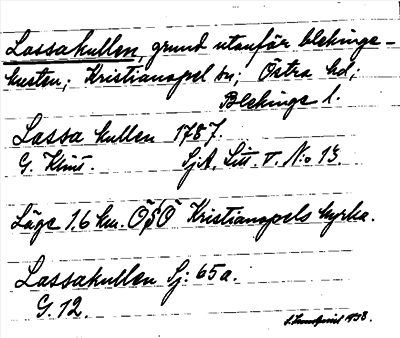 Lassakullen, grund utanför blekinge-
kusten; Kristianopel sn; Östra hd,
Blekinge l.
Lassa kullen 1787.
G. Klint. SjA. Litt. V. No 13.
Läge 1,6 km. ÖSÖ Kristianopels kyrka.
Lassakullen Sj: 65a.
G. 12.
1938.